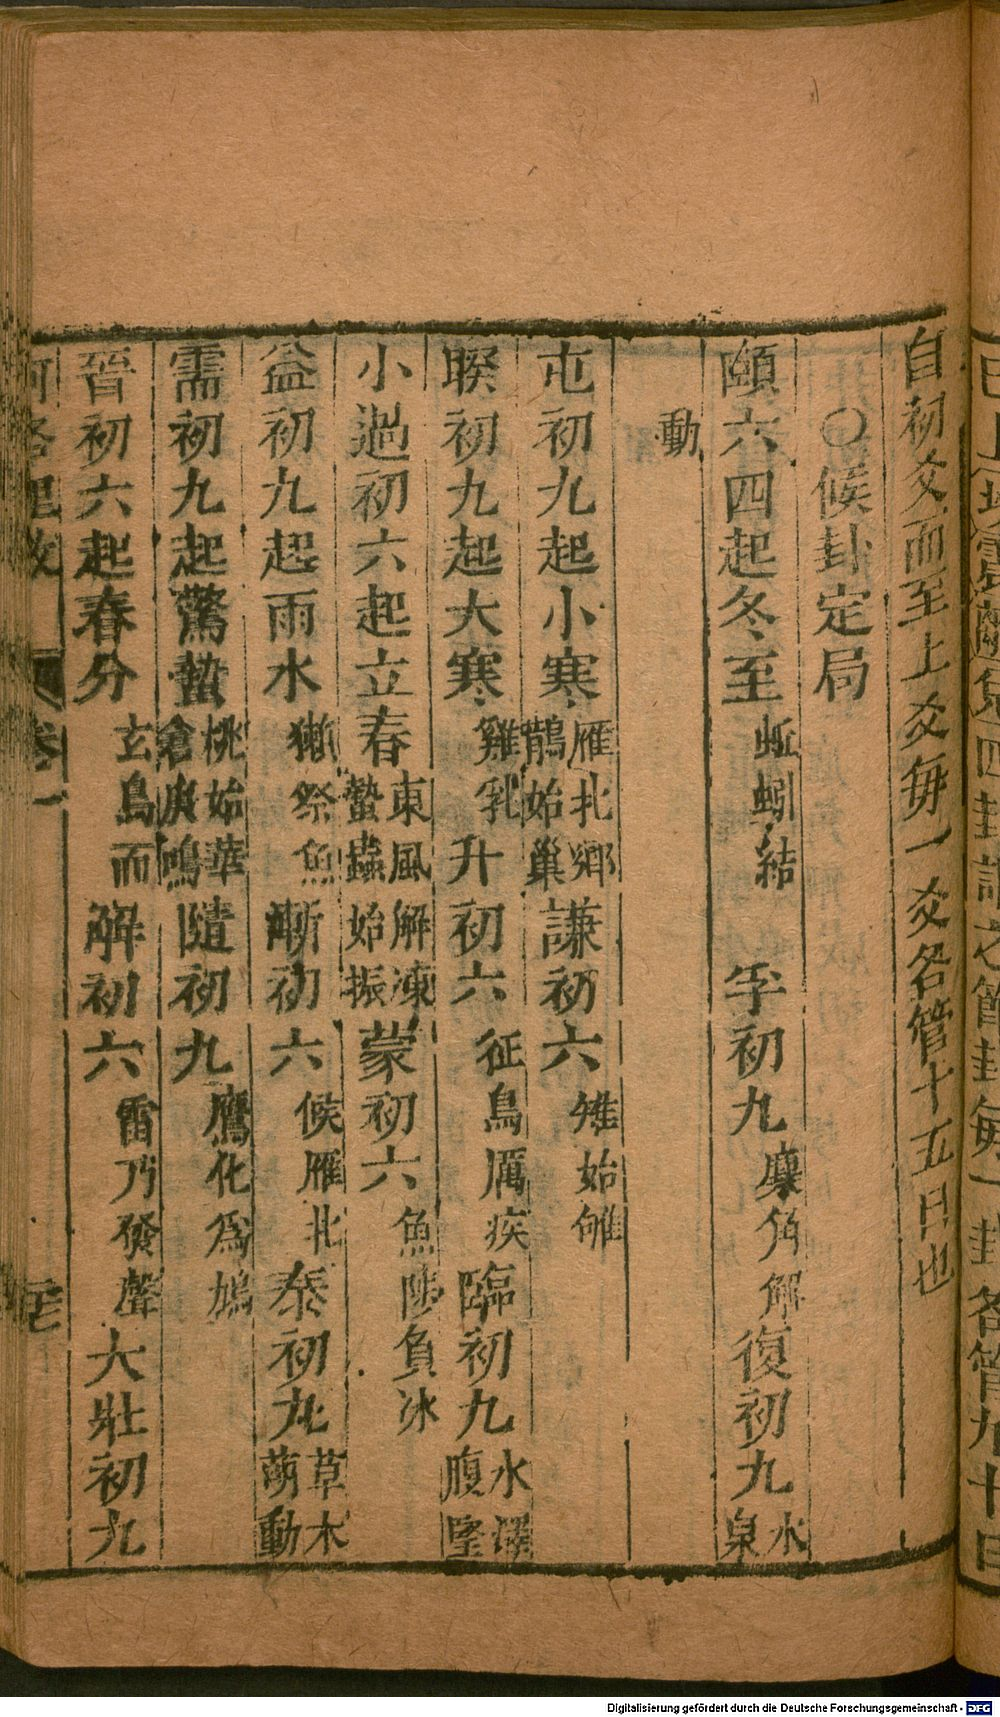 自初爻而至上爻每一爻各管十五日也
○候卦定局
頤六四起冬至蚯蚓結孚初九麋角解復初九水泉
動
屯初九起小寒雁北鄉鵲始巢謙初六雉始雊
睽初九起大寒雞乳升初六征鳥厲疾臨初九水澤腹堅
小過初六起立春東風解凍蟄蟲始振蒙初六魚陟負冰
益初九起雨水獺祭魚漸初六候雁北泰初九草木萌動
需初九起驚蟄桃始華倉庚鳴隨初九鷹化為鳩
晉初六起春分玄鳥而解初六雷乃發聲大壯初九
卷一
四卦
之管卦每一卦各管九十日
Digitalisierung gefördert durch die Deutsche Forschungsgemeinschaft - DFG